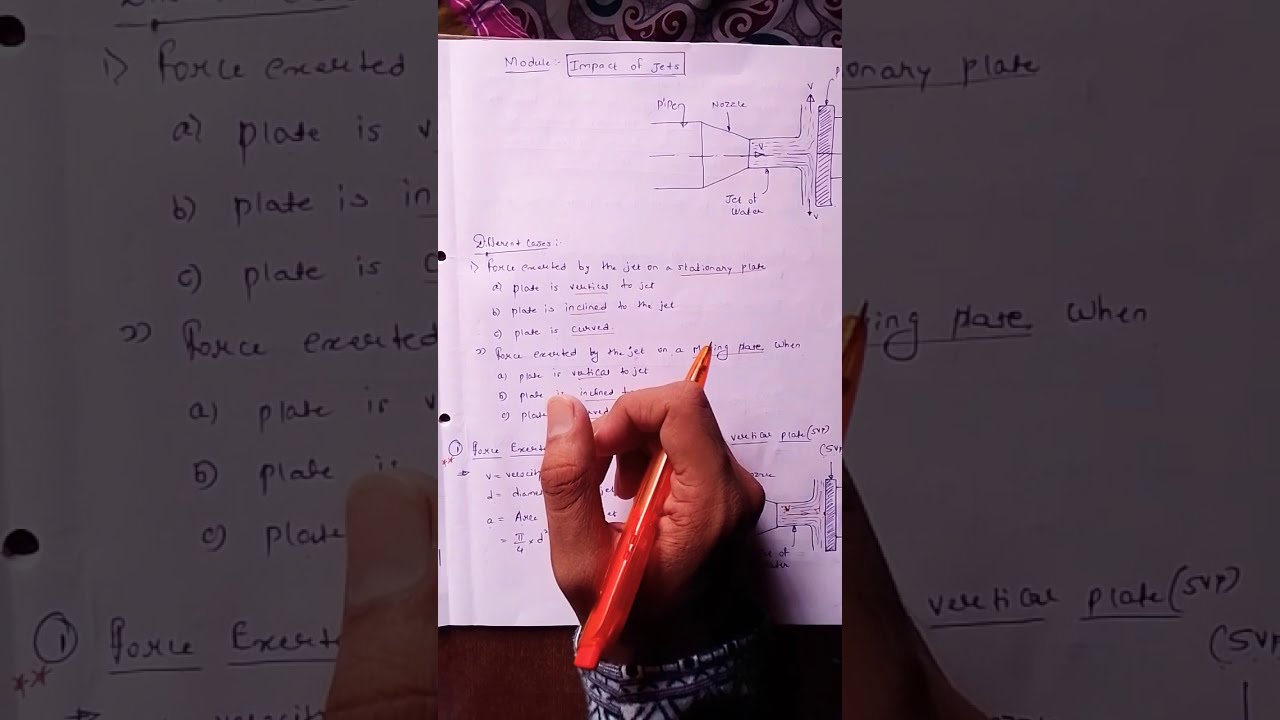 Module:- Impact of Jets
Pipe
Nozzle
V
V
Jet of
Water
V
Different Cases:-
1) Force exerted by the jet on a stationary plate
a) plate is vertical to jet
b) plate is inclined to the jet
c) plate is curved.
2) Force exerted by the jet on a plate when
a) plate is vertical to jet
b) plate is inclined
c) plate
① Force vertical plate (SVP)
(SVP
V =
d =
a = Area
= π/4 × d²